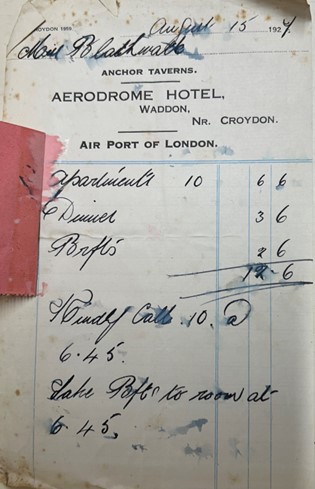 August 15 1927.
Miss
ANCHOR TAVERNS.
AERODROME HOTEL,
WADDON,
NR. CROYDON.
AIR PORT OF LONDON.
Apartments 10 6 6
Dinner 3 6
Brfts 2 6
12.6
Kindly Call. 10. @
6.45.
Take Bfts to room at
6.45.